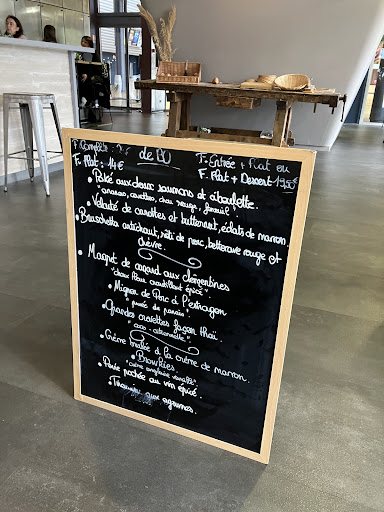 de BU
F. Complète :
F. Plat : 14€
F. Entrée + Plat ou
F. Plat + Dessert 19,50€
• Poké aux deux saumons et ciboulette.
"ananas, carottes, chou rouge, fenouil"
• Velouté de carottes et butternut, éclats de marron.
• Bruschetta artichaut, rôti de porc, betterave rouge et
chèvre.
• Magret de canard aux clémentines
"choux croustillant épicé"
• Mignon de Porc à l'estragon
"purée de panais"
• Grandes crevettes façon thaï.
"coco - citronnelle"
• Crème brûlée à la crème de marron.
• Brownies.
"crème anglaise vanille"
• Poire pochée au vin épicé.
• Tiramisu aux agrumes.